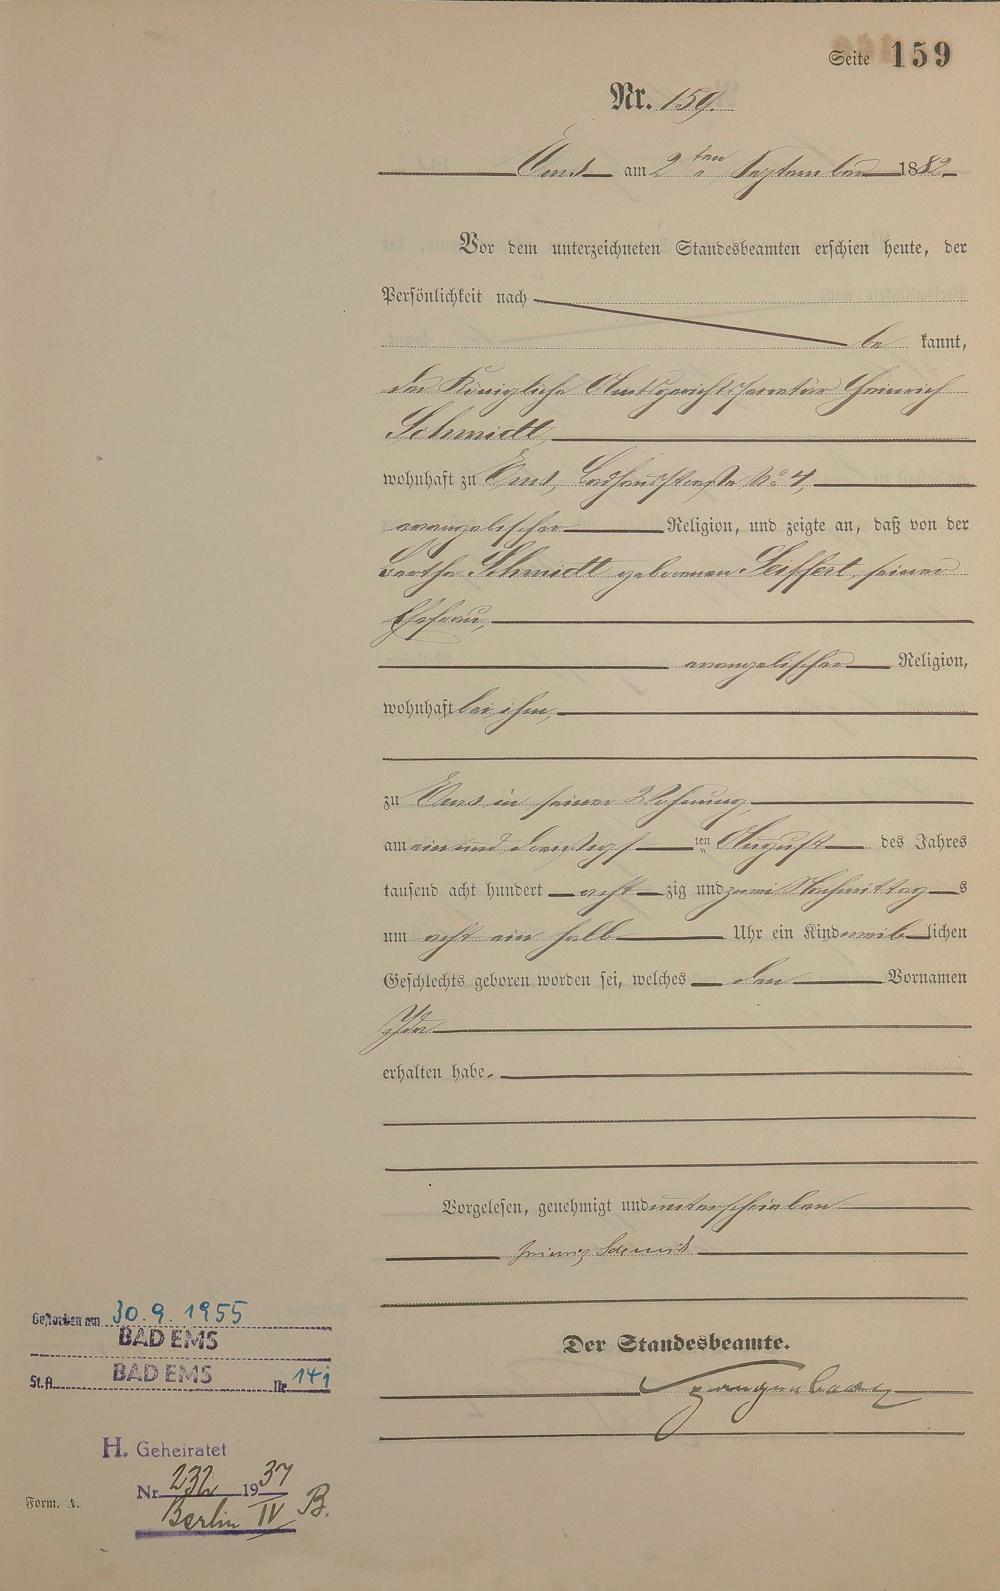 Seite 159
Nr. 159.
Ems am 2ten September 1882
Vor dem unterzeichneten Standesbeamten erschien heute, der
Persönlichkeit nach
be kannt,
der Königliche Amtsgerichtssecretär Heinrich
Schmidt,
wohnhaft zu Ems, Badhausstraße No 4,
evangelischer Religion, und zeigte an, daß von der
Bertha Schmidt geborenen Seiffert, seiner
Ehefrau,
evangelischer Religion,
wohnhaft bei ihm,
zu Ems in seiner Wohnung,
am ein und dreißigsten August des Jahres
tausend acht hundert acht zig und zwei Nachmittags
um acht ein halb Uhr ein Kind weiblichen
Geschlechts geboren worden sei, welches den Vornamen
Ida
erhalten habe.
Vorgelesen, genehmigt und unterschrieben
Heinrich Schmidt
Der Standesbeamte.
Gestorben am 30.9.1955
BAD EMS
St.A. BAD EMS Nr. 141
H. Geheiratet
Nr. 232 1937
Berlin IV B.
Form. A.